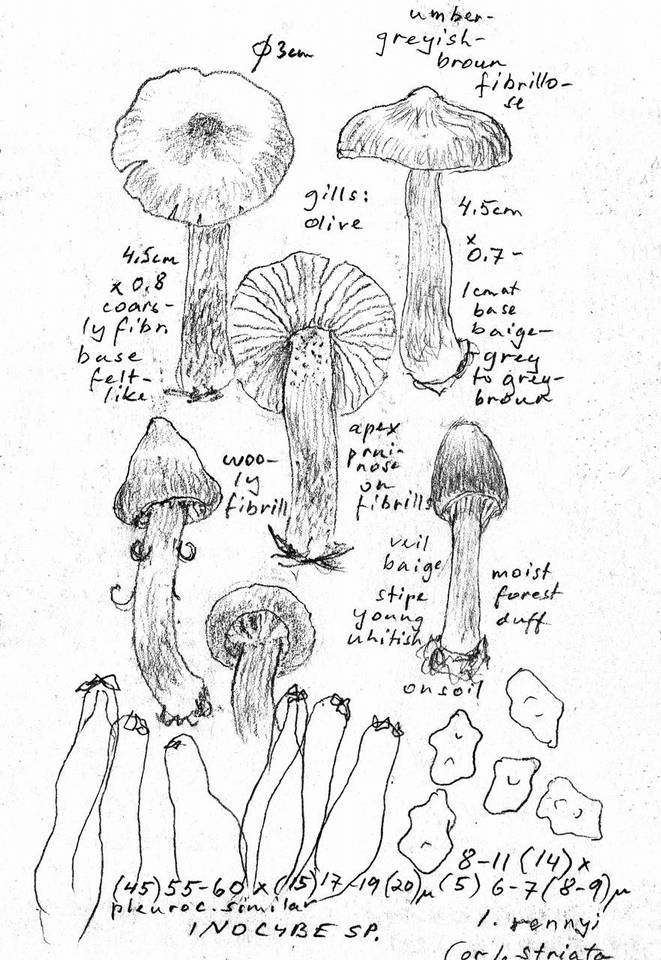 umber-
greyish-
brown
fibrillo-
se
Ø 3cm
gills:
olive
4.5cm
x 0.8
coars-
ly fibr.
base
felt-
like
4.5cm
x
0.7-
1cm at
base
baige-
grey
to grey-
brown
woo-
ly
fibrill
apex
prui-
nose
on
fibrills
veil
baige
stipe
young
whitish
moist
forest
duff
on soil
8-11 (14) x
(45) 55-60 x (15) 17-19 (20) µ (5) 6-7 (8-9) µ
pleuroc. similar
INOCYBE SP.
I. rennyi
(or I. striata